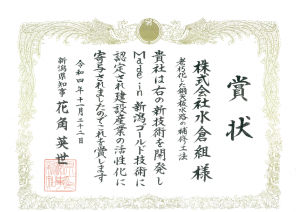 賞状
株式会社水倉組 様
老朽化した鋼矢板水路の補修工法
貴社は右の新技術を開発し
Made in 新潟ゴールド技術に
認定され建設産業の活性化に
寄与されましたのでこれを賞します
令和四年十一月二十二日
新潟県知事 花角英世